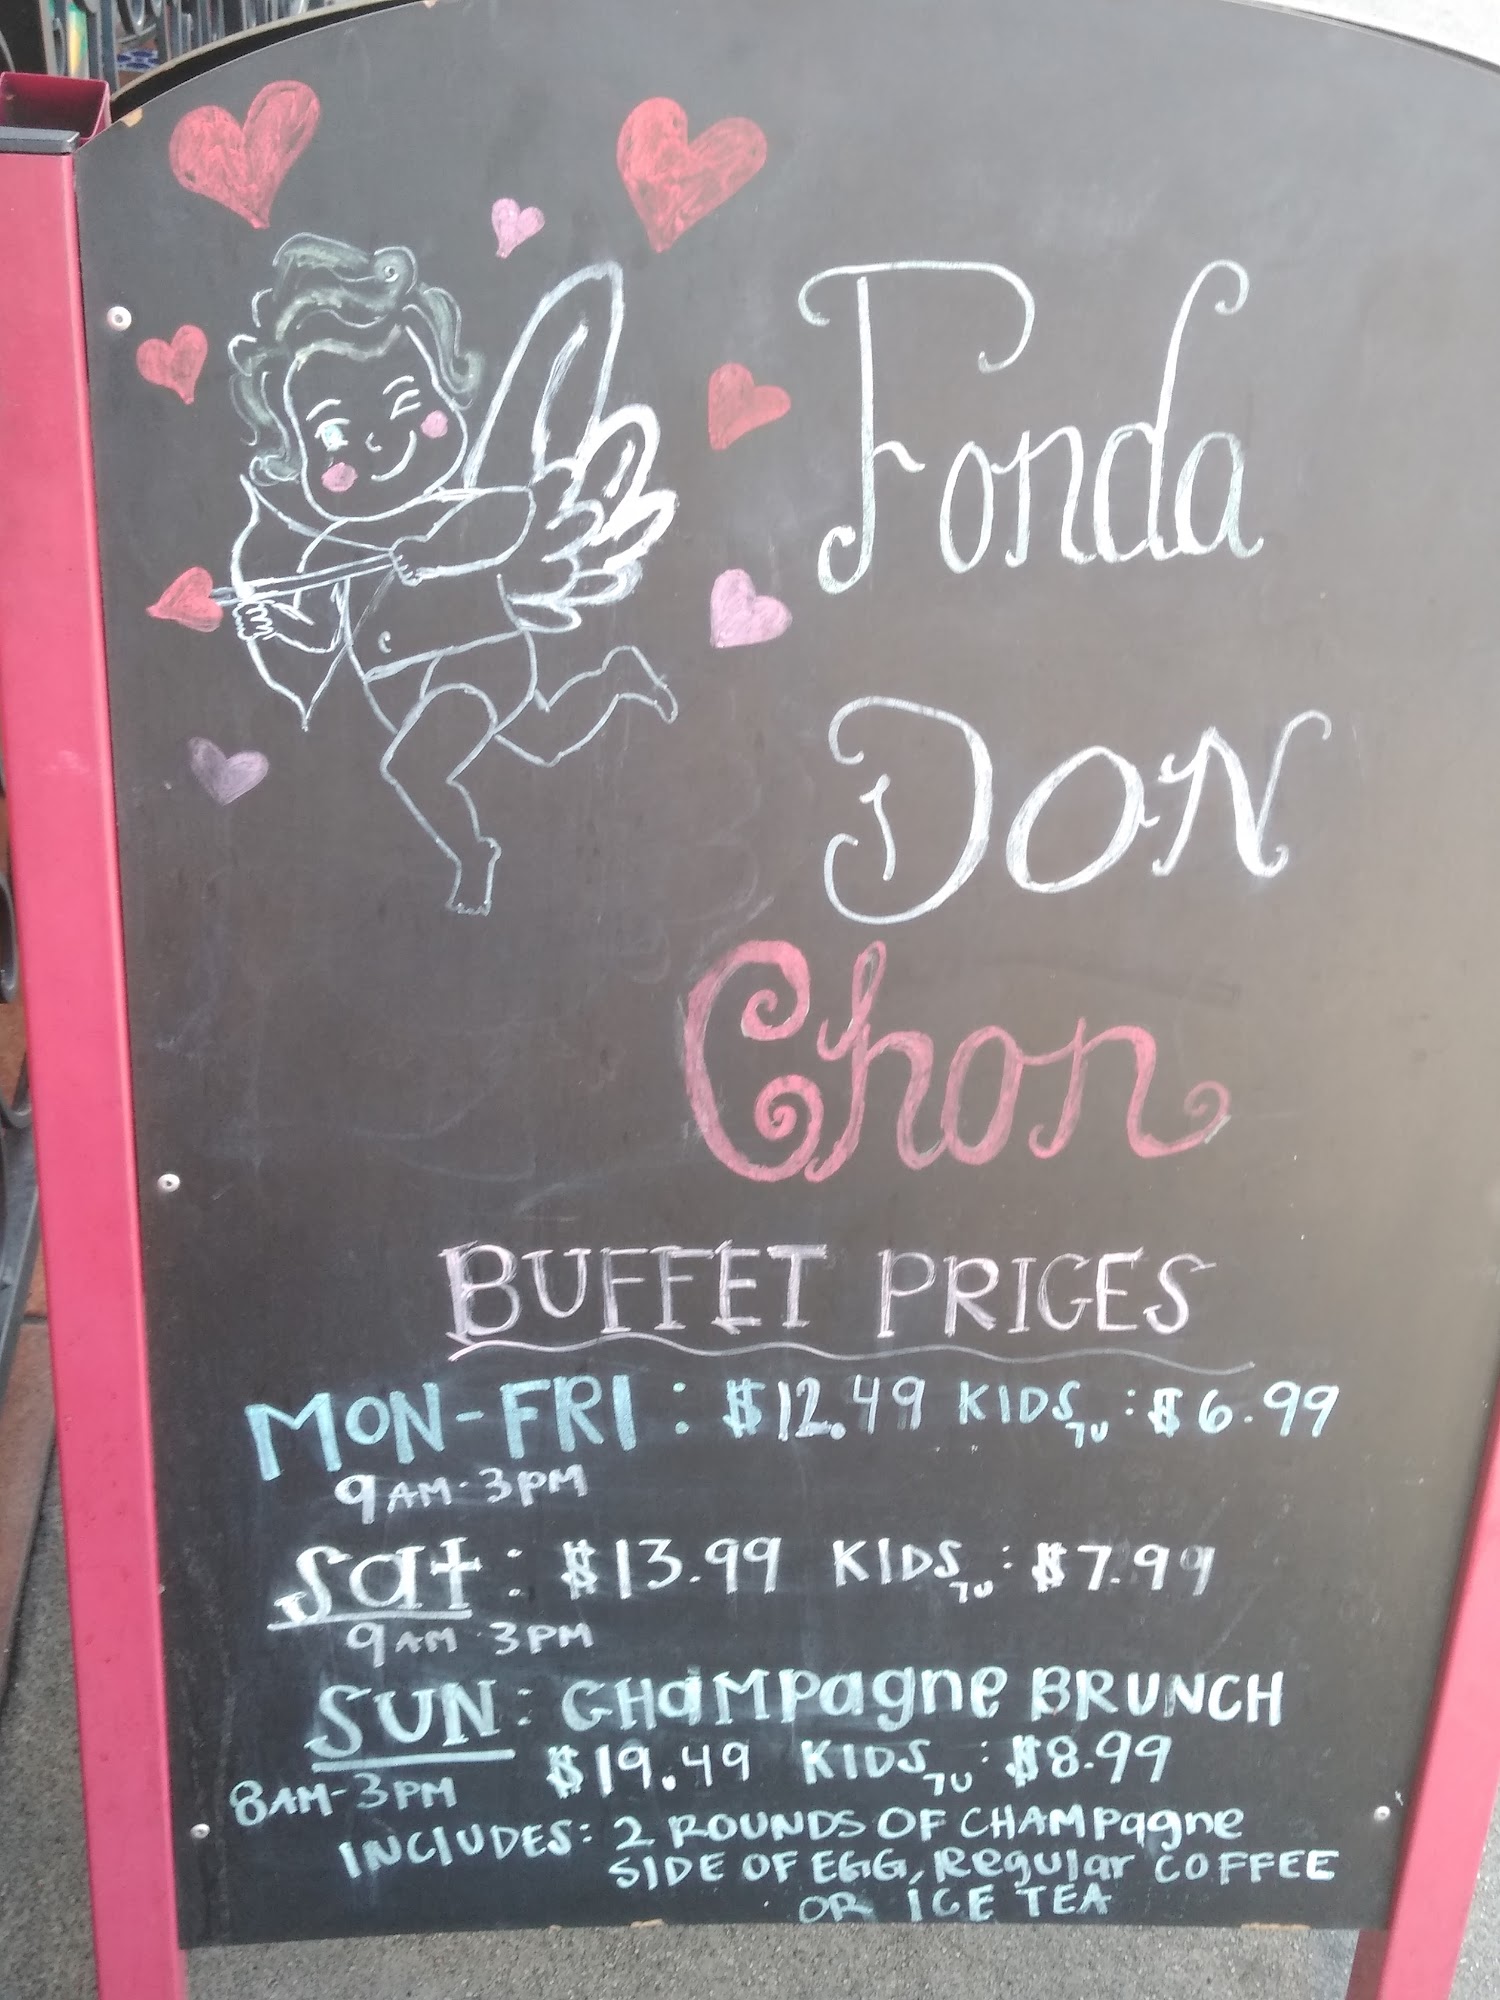 Fonda
DON
Chon
BUFFET PRICES
MON-FRI: $12.49 KIDS 7U: $6.99
9AM-3PM
Sat: $13.99 KIDS 7U: $7.99
9AM 3PM
SUN: CHAMPagne BRUNCH
$19.49 KIDS 7U: $8.99
8AM-3PM
INCLUDES: 2 ROUNDS OF CHAMPagne
SIDE OF EGG, Regular COFFEE
OR ICE TEA